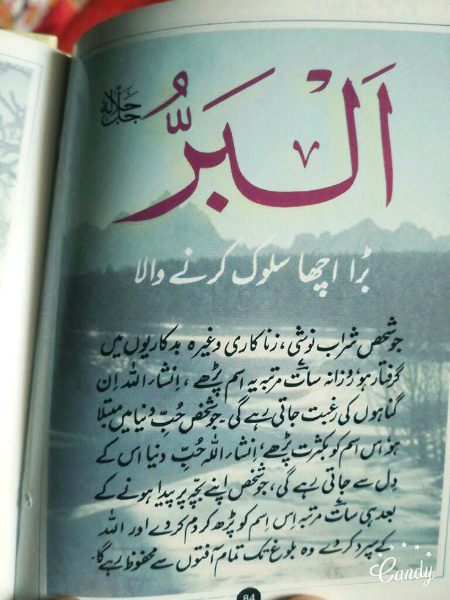 اَلْبَرُّ
جل جلالہ
بڑا اچھا سلوک کرنے والا
جو شخص شراب نوشی، زنا کاری وغیرہ بدکاریوں میں
گرفتار ہو روزانہ سات مرتبہ یہ اسم پڑھے، اِنشاء اللہ اِن
گناہوں کی رغبت جاتی رہے گی۔ جو شخص حُبِّ دنیا میں مبتلا
ہو اس اسم کو بکثرت پڑھے، اِنشاء اللہ حُبِّ دنیا اس کے
دِل سے جاتی رہے گی، جو شخص اپنے بچّہ پر پیدا ہونے کے
بعد ہی سات مرتبہ اِس اسم کو پڑھ کر دم کر دے اور اللہ
کے سپرد کر دے وہ بلوغ تک تمام آفتوں سے محفوظ رہے گا۔
84
Candy